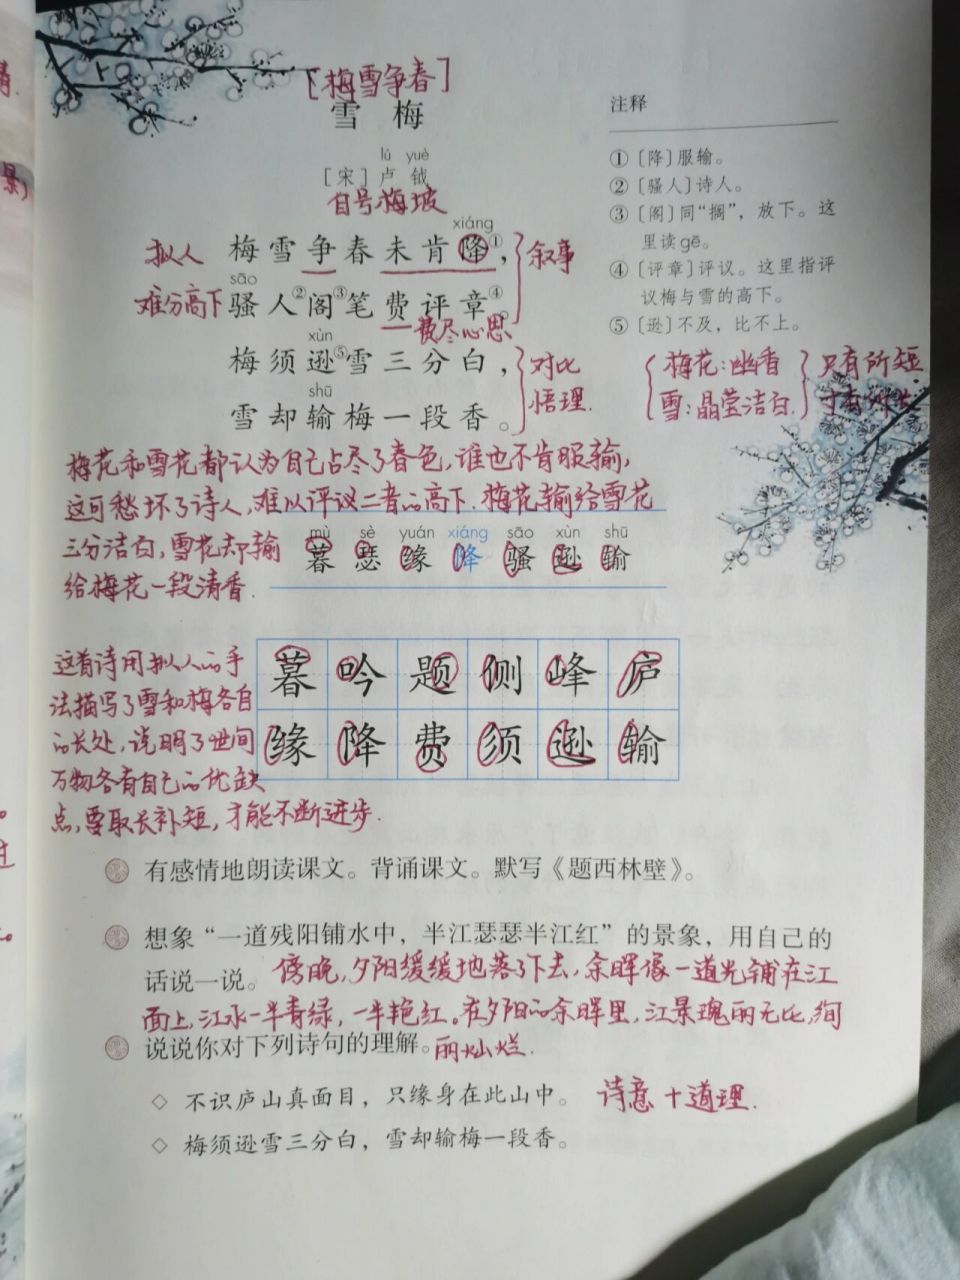 [梅雪争春]
雪 梅
lú yuè
[宋] 卢 钺
自号梅坡
xiáng
拟人 梅雪争春未肯降①， 叙事
sāo
难分高下 骚人②阁③笔费评章④。
费尽心思
xùn
梅须逊⑤雪三分白， 对比
shū
雪却输梅一段香。 悟理.
注释
①〔降〕服输。
②〔骚人〕诗人。
③〔阁〕同“搁”，放下。这
里读gē。
④〔评章〕评议。这里指评
议梅与雪的高下。
⑤〔逊〕不及，比不上。
梅花:幽香 只有所短
雪:晶莹洁白. 寸有所长
梅花和雪花都认为自己占尽了春色,谁也不肯服输,
这可愁坏了诗人,难以评议二者的高下.梅花输给雪花
三分洁白,雪花却输
给梅花一段清香.
mù sè yuán xiáng sāo xùn shū
暮 瑟 缘 降 骚 逊 输
这首诗用拟人的手
法描写了雪和梅各自
的长处,说明了世间
万物各有自己的优缺
点,要取长补短,才能不断进步.
暮 吟 题 侧 峰 庐
缘 降 费 须 逊 输
有感情地朗读课文。背诵课文。默写《题西林壁》。
想象“一道残阳铺水中，半江瑟瑟半江红”的景象，用自己的
话说一说。 傍晚,夕阳缓缓地落了下去,余晖像一道光铺在江
面上,江水一半青绿,一半艳红。在夕阳的余晖里,江景瑰丽无比,绚
说说你对下列诗句的理解。 丽灿烂.
◇ 不识庐山真面目，只缘身在此山中。 诗意+道理.
◇ 梅须逊雪三分白，雪却输梅一段香。